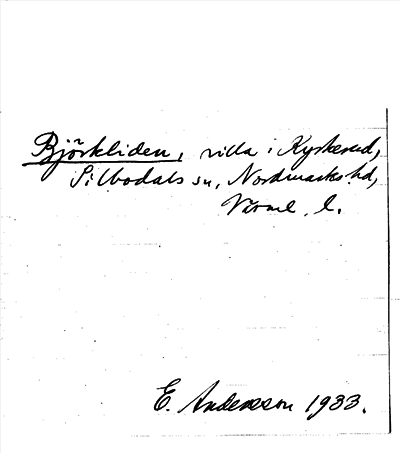 Björkliden, villa i Kyrkerud,
Silbodals sn, Nordmarks hd,
Värml. l.
E. Andersson 1933.